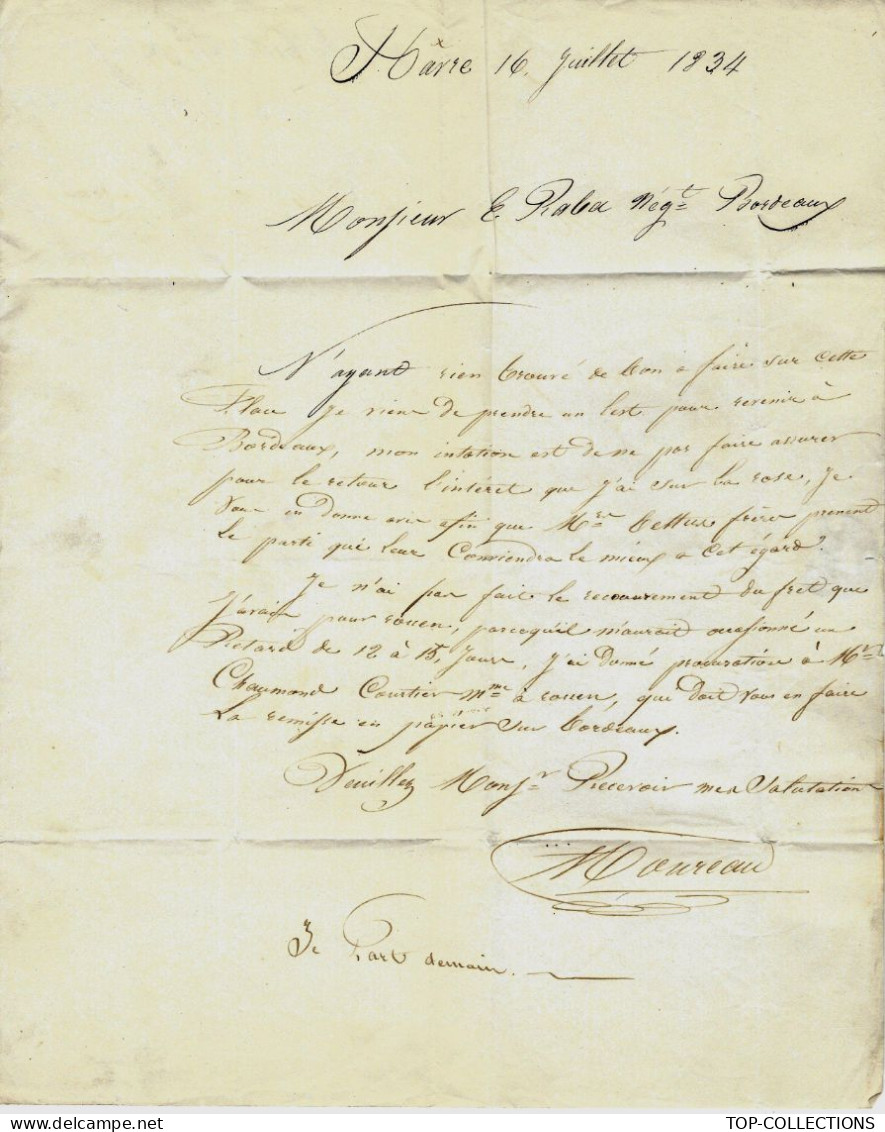 Hâvre 16. Juillet 1834
Monsieur E Raba Nég.t Bordeaux
N'ayant rien trouvé de bon a faire sur Cette
Place Je viens de prendre un lest pour revenir à
Bordeaux, mon intation est de ne pas faire assurer
pour le retour l'intéret que j'ai sur la rose, Je
Vous en donne avis afin que M.rs frère prenent
le parti qui leur Conviendra le mieux a cet égard.
Je n'ai pas fait le recouvrement du fret que
J'avais pour rouen, parcequ'il m'aurait occasionné un
Retard de 12 à 15, Jours, J'ai donné procuration à M.r
Chaumond Courtier m.me à rouen, que doit Vous en faire
La remisse en papier sur bordeaux.
Veuillez Mons.r Recevoir mes Salutations
Moureau
Je Part demain.
TOP-COLLECTIONS